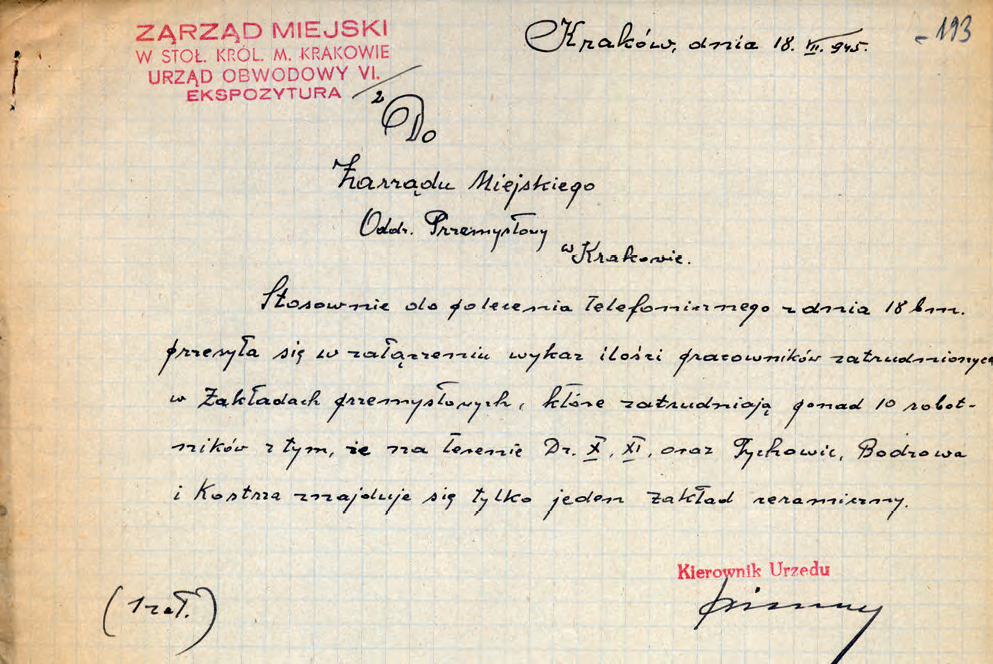 ZARZĄD MIEJSKI
W STOŁ. KRÓL. M. KRAKOWIE
URZĄD OBWODOWY VI.
EKSPOZYTURA
2
Kraków, dnia 18. VII. 945.
193
Do
Zarządu Miejskiego
Oddz. Przemysłowy
w Krakowie.
Stosownie do polecenia telefonicznego z dnia 18 bm.
przesyła się w załączeniu wykaz ilości pracowników zatrudnionych
w Zakładach przemysłowych, które zatrudniają ponad 10 robot-
ników z tym, że na terenie Dz. X, XI, oraz Tychowic, Bodzowa
i Kostrza znajduje się tylko jeden zakład ceramiczny.
Kierownik Urzędu
(1 zał.)